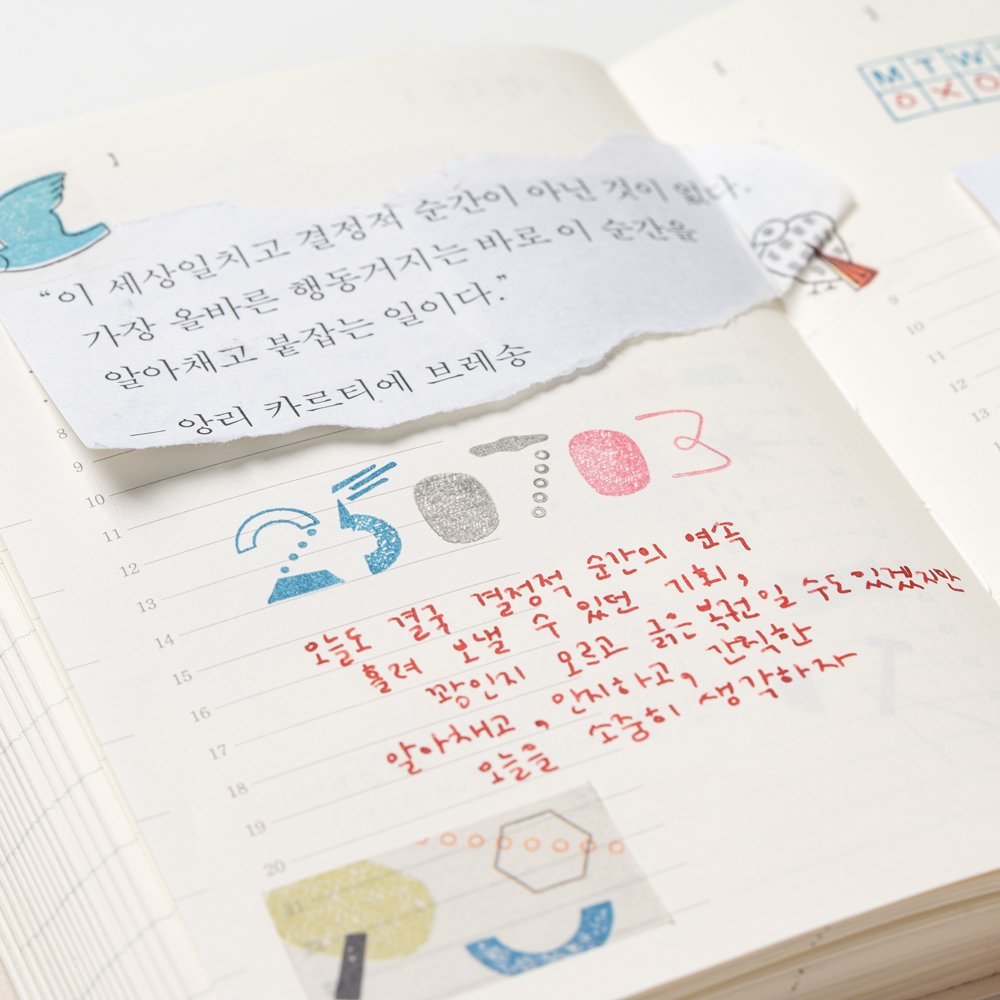 1
M T W
O X O
“이 세상일치고 결정적 순간이 아닌 것이 없다.
가장 올바른 행동거지는 바로 이 순간을
알아채고 붙잡는 일이다.”
— 앙리 카르티에 브레송
8
9
10
11
12
13
14
15
16
17
18
19
20
21
25 07 03
오늘도 결국 결정적 순간의 연속
흘려 보낼 수 있던 기회,
꽝인지 모르고 긁은 복권일 수도 있겠지만
알아채고, 인지하고, 간직한
오늘을 소중히 생각하자
9
10
11
12
13